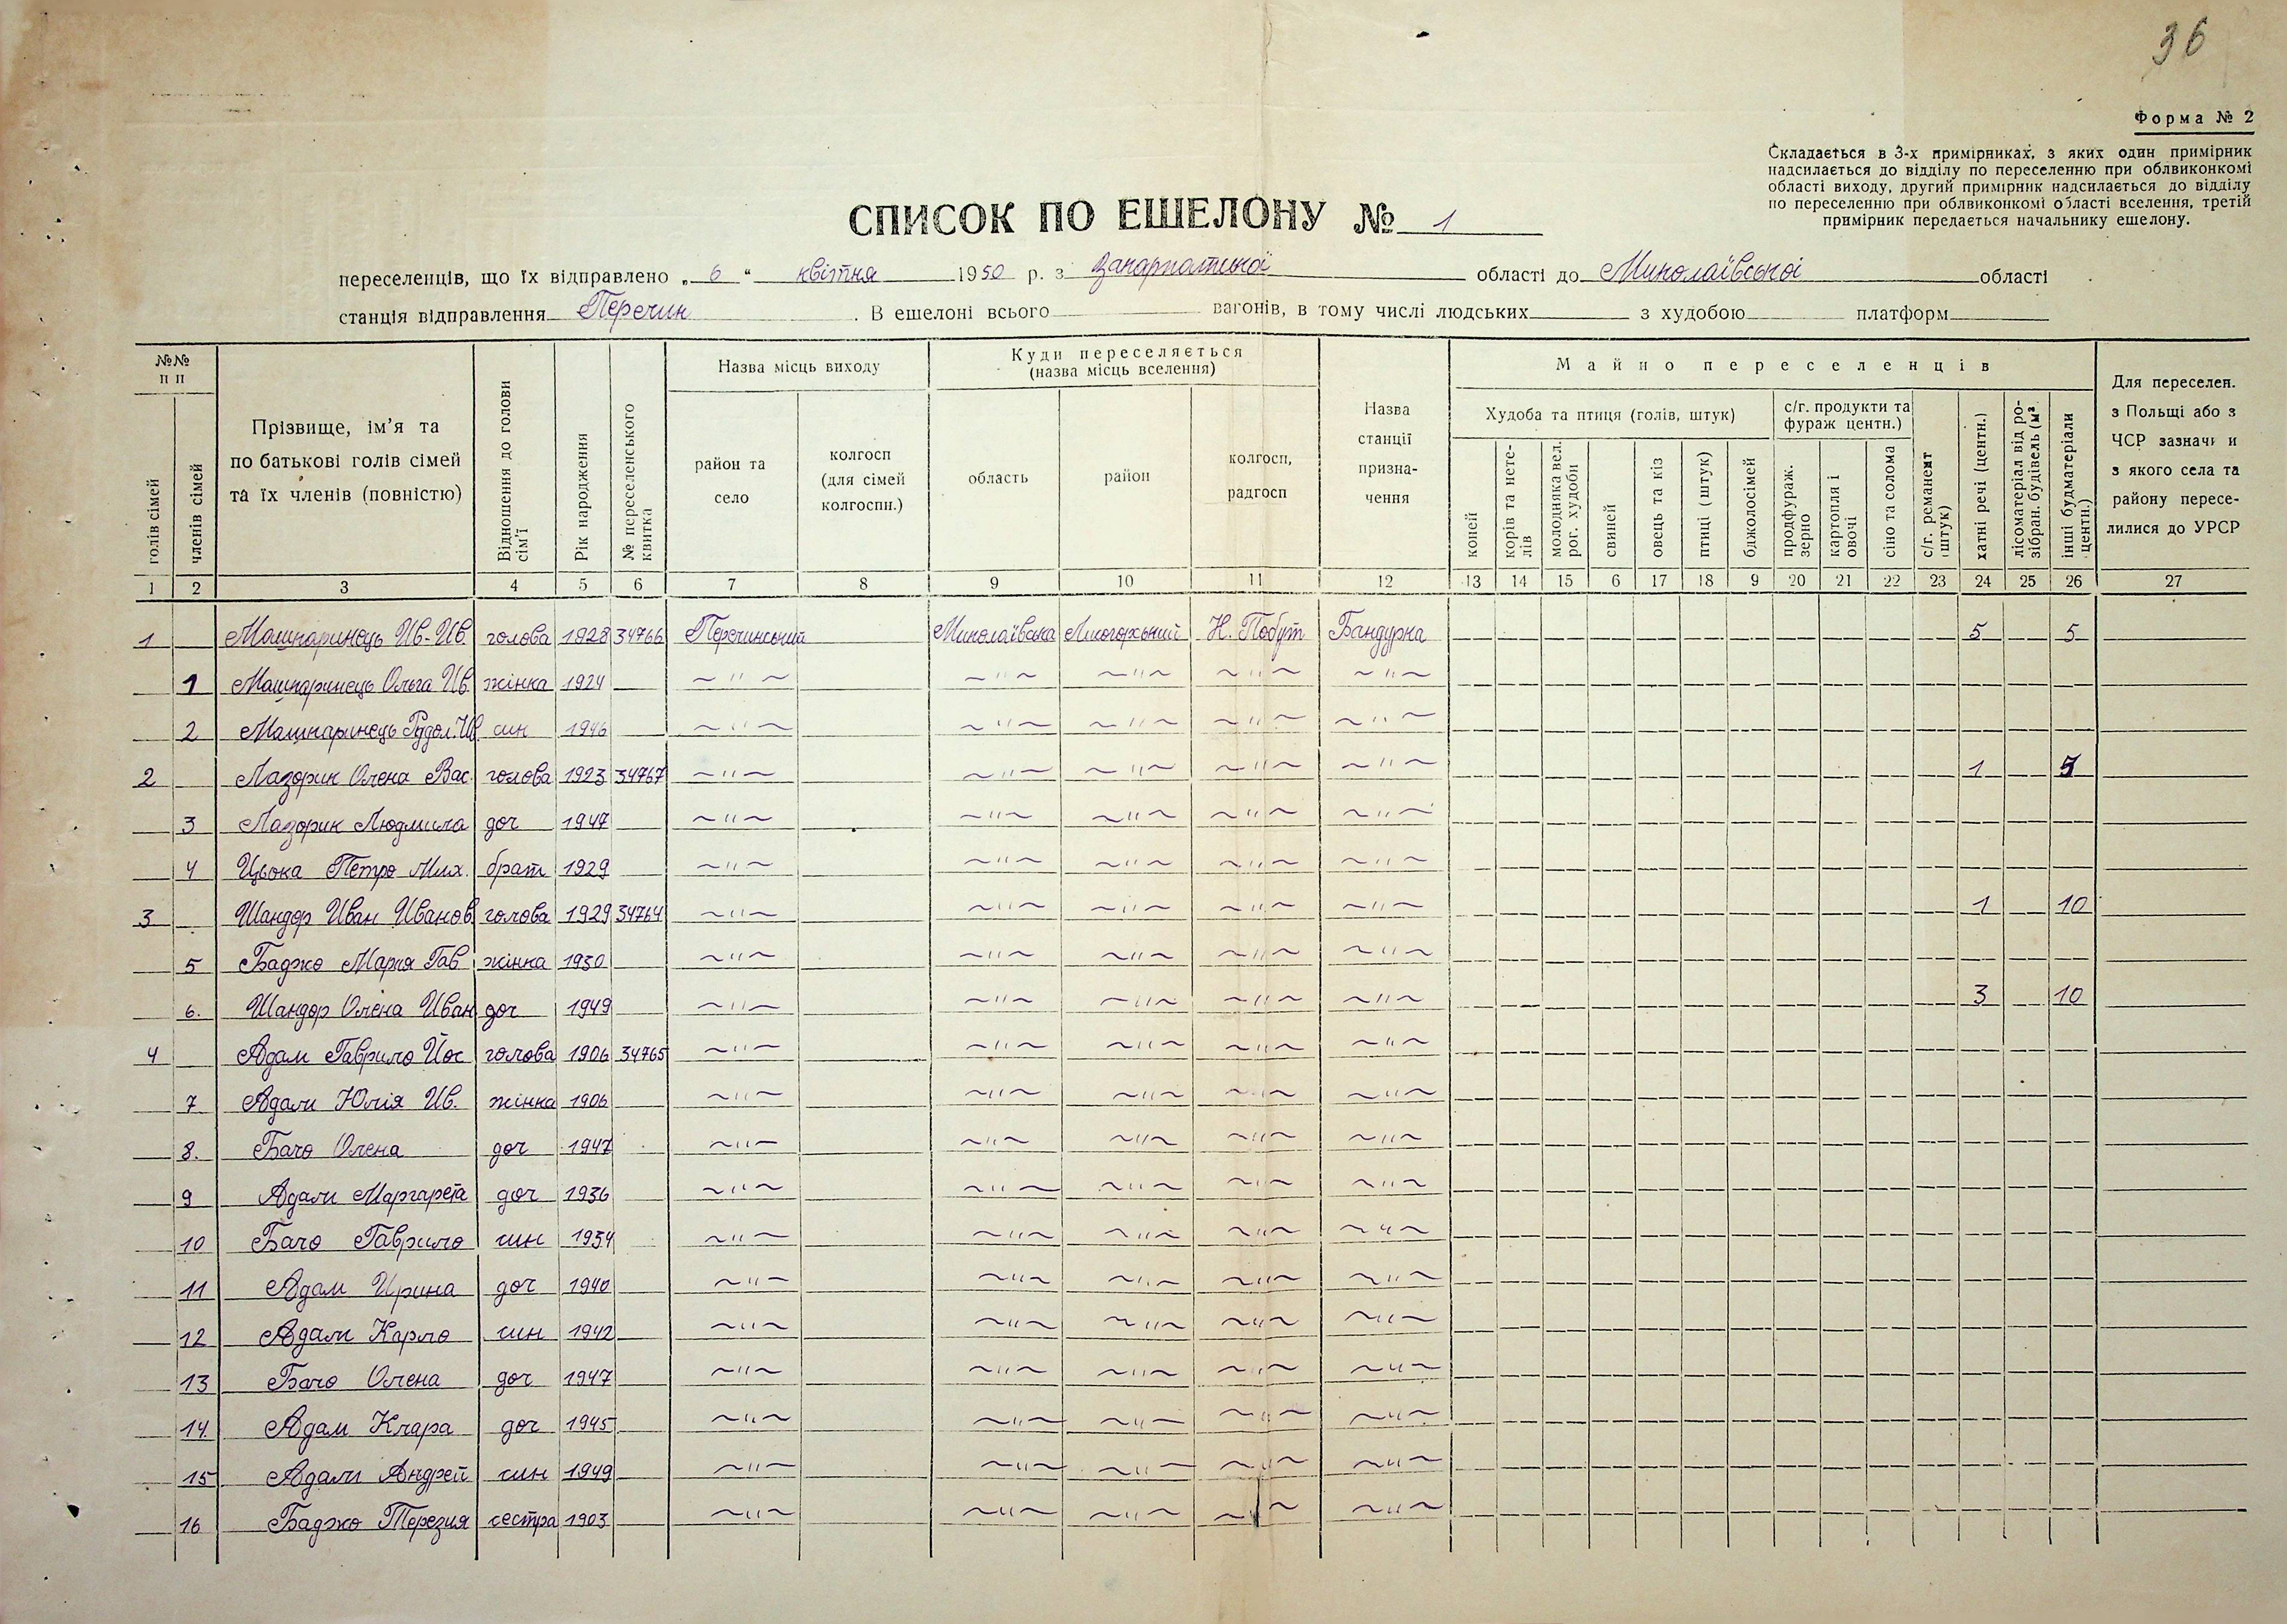 36
Форма № 2
Складається в 3-х примірниках, з яких один примірник
надсилається до відділу по переселенню при облвиконкомі
області виходу, другий примірник надсилається до відділу
по переселенню при облвиконкомі області вселення, третій
примірник передається начальнику ешелону.
СПИСОК ПО ЕШЕЛОНУ № 1
переселенців, що їх відправлено „ 6 “ квітня 1950 р. з Закарпатської області до Миколаївської області
станція відправлення Перечин . В ешелоні всього вагонів, в тому числі людських з худобою платформ
№№ пп
голів сімей
членів сімей
Прізвище, ім’я та по батькові голів сімей та їх членів (повністю)
Відношення до голови сім’ї
Рік народження
№ переселенського квитка
Назва місць виходу
район та село
колгосп (для сімей колгоспн.)
Куди переселяється (назва місць вселення)
область
район
колгосп, радгосп
Назва станції призна- чення
Майно переселенців
Худоба та птиця (голів, штук)
коней
корів та нете- лів
молодняка вел. рог. худоби
свиней
овець та кіз
птиці (штук)
бджолосімей
с/г. продукти та фураж центн.)
продфураж. зерно
картопля і овочі
сіно та солома
с/г. реманент (штук)
хатні речі (центн.)
лісоматеріал від ро- зібран. будівель (м²
інші будматеріали центн.)
Для переселен. з Польщі або з ЧСР зазначи и з якого села та району пересе- лилися до УРСР
1 2 3 4 5 6 7 8 9 10 11 12 13 14 15 6 17 18 9 20 21 22 23 24 25 26 27
1 Машкаринець Ив-Ив голова 1928 34766 Перечинський Миколаївська Лисогорський Бандурка 5 5
1 Машкаринець Ольга Ив жінка 1924 ~"~ ~"~ ~"~ ~"~ ~"~
2 Машкаринець Рудол. Ив. син 1946 ~"~ ~"~ ~"~ ~"~ ~"~
2 Лазорик Олена Вас. голова 1923 34767 ~"~ ~"~ ~"~ ~"~ ~"~ 1 5
3 Лазорик Людмила доч 1947 ~"~ ~"~ ~"~ ~"~ ~"~
4 Цьока Петро Мих. брат 1929 ~"~ ~"~ ~"~ ~"~ ~"~
3 Шандор Иван Иванов голова 1929 34764 ~"~ ~"~ ~"~ ~"~ ~"~ 1 10
5 Баджо Мария Гав жінка 1930 ~"~ ~"~ ~"~ ~"~ ~"~
6. Шандор Олена Иван доч 1949 ~"~ ~"~ ~"~ ~"~ ~"~ 3 10
4 Адам Гаврило Йос голова 1906 34765 ~"~ ~"~ ~"~ ~"~ ~"~
7 Адам Юлія Ив. жінка 1906 ~"~ ~"~ ~"~ ~"~ ~"~
8. Бачо Олена доч 1947 ~"~ ~"~ ~"~ ~"~ ~"~
9 Адам Маргарета доч 1936 ~"~ ~"~ ~"~ ~"~ ~"~
10 Бачо Гаврило син 1934 ~"~ ~"~ ~"~ ~"~ ~"~
11 Адам Ирина доч 1940 ~"~ ~"~ ~"~ ~"~ ~"~
12 Адам Карло син 1942 ~"~ ~"~ ~"~ ~"~ ~"~
13 Бачо Олена доч 1947 ~"~ ~"~ ~"~ ~"~ ~"~
14. Адам Клара доч 1945 ~"~ ~"~ ~"~ ~"~ ~"~
15 Адам Андрей син 1949 ~"~ ~"~ ~"~ ~"~ ~"~
16 Баджо Терезия сестра 1903 ~"~ ~"~ ~"~ ~"~ ~"~